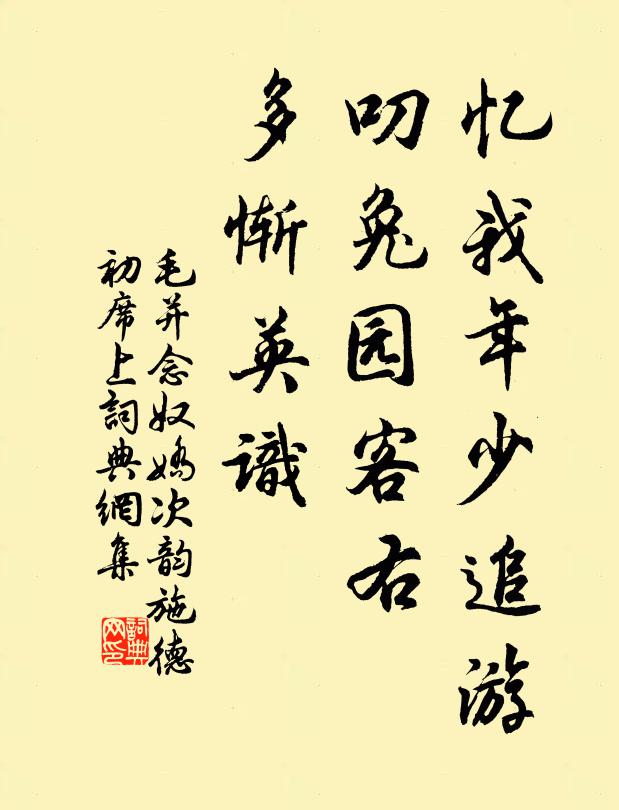 忆我年少追游
叨兔园客右
多惭英識
毛并念奴嬌次韵施德
初席上詞典網集
詞典网印